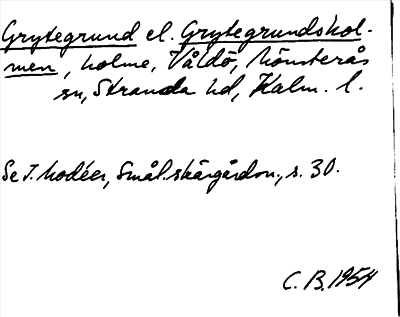 Grytegrund el. Grytegrundshol-
men, holme, Våldö, Mönsterås
sn, Stranda hd, Kalm. l.
Se J. Modéer, Smål. skärgårdsn., s. 30.
C. B. 1954